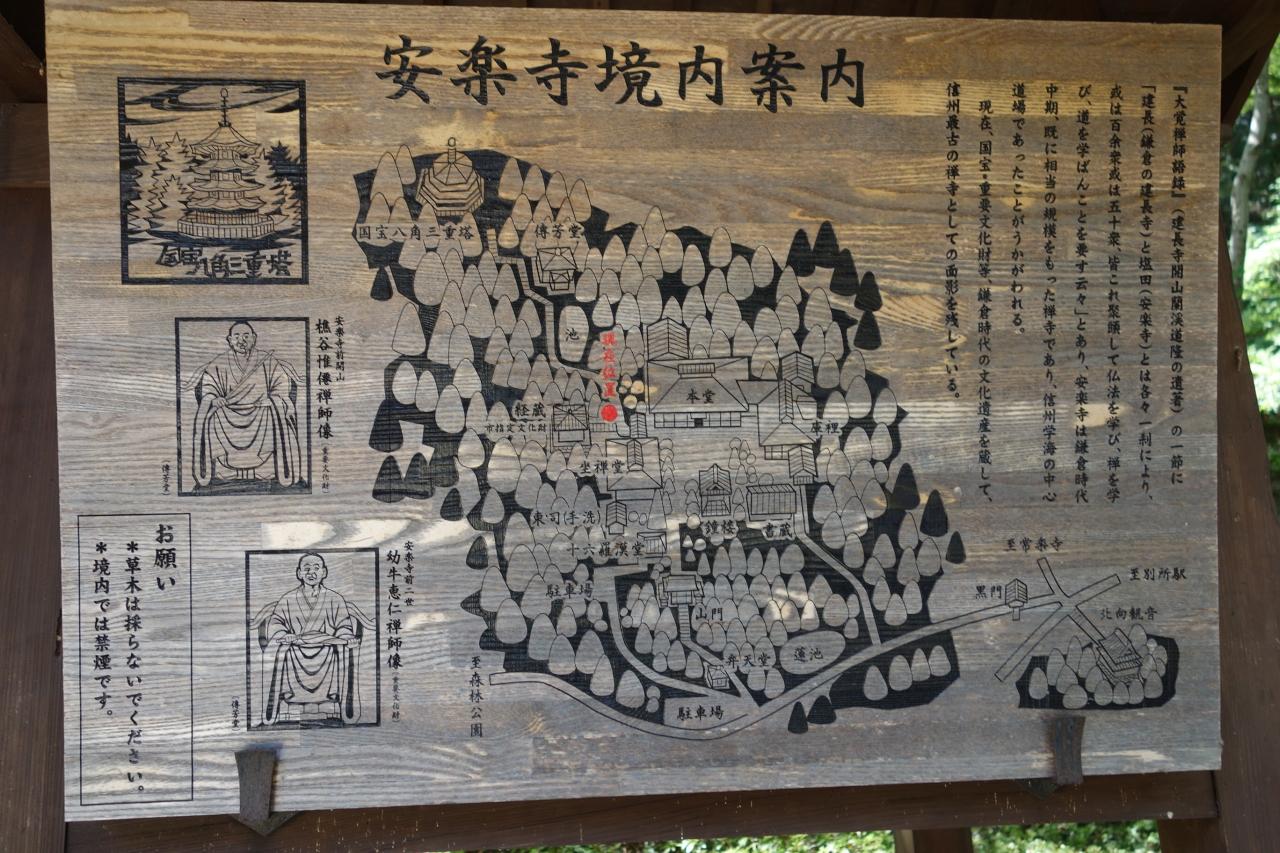 安楽寺境内案内
『大覚禅師語録』(建長寺開山蘭渓道隆の遺著)の一節に
「建長(鎌倉の建長寺)と塩田(安楽寺)とは各々一刹により、
或は百余衆或は五十衆、皆これ聚頭して仏法を学び、禅を学
び、道を学ばんことを要す云々」とあり、安楽寺は鎌倉時代
中期、既に相当の規模をもった禅寺であり、信州学海の中心
道場であったことがうかがわれる。
現在、国宝・重要文化財等、鎌倉時代の文化遺産を蔵して、
信州最古の禅寺としての面影を残している。
国宝八角三重塔
安楽寺前開山
樵谷惟僊禅師像
(重要文化財)
(傳芳堂)
安楽寺前二世
幼牛恵仁禅師像
(重要文化財)
(傳芳堂)
お願い
＊草木は採らないでください。
＊境内では禁煙です。
国宝八角三重塔
傳芳堂
池
現在位置
本堂
経蔵
市指定文化財
庫裡
坐禅堂
東司(手洗)
鐘楼
書蔵
十六羅漢堂
駐車場
山門
弁天堂
蓮池
駐車場
至森林公園
黒門
至常楽寺
至別所駅
北向観音